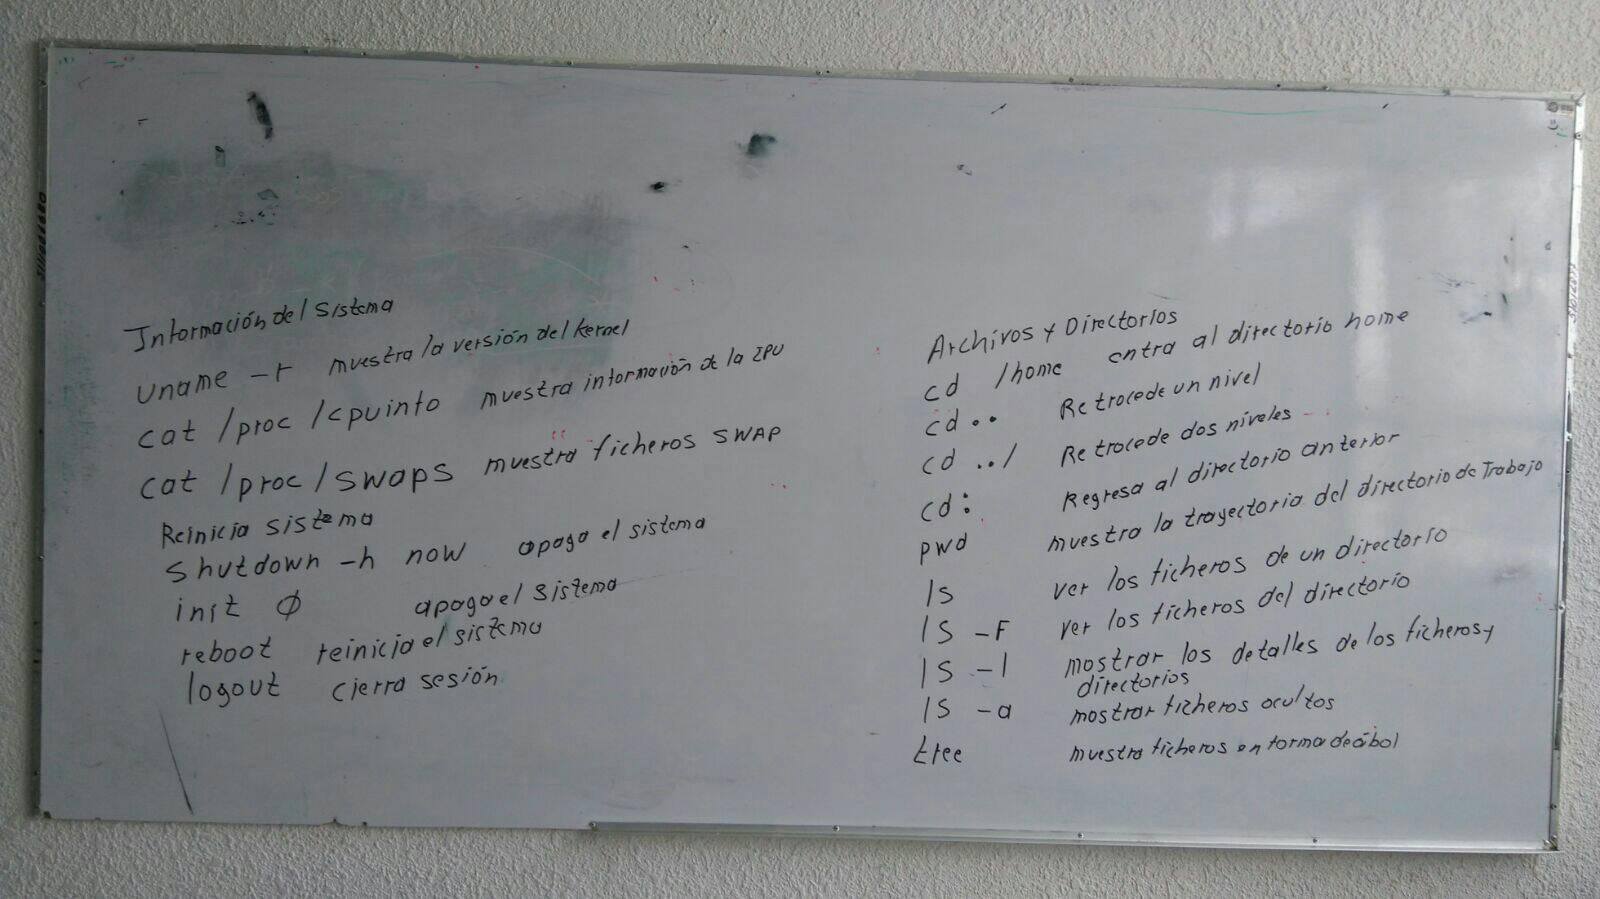 Información del Sistema
uname -r muestra la versión del kernel
cat /proc /cpuinfo muestra información de la CPU
cat /proc /swaps muestra ficheros SWAP
Reinicia sistema
shutdown -h now apaga el sistema
init 0 apaga el sistema
reboot reinicia el sistema
logout cierra sesión
Archivos y Directorios
cd /home entra al directorio home
cd .. Retrocede un nivel
cd ../ Retrocede dos niveles
cd : Regresa al directorio anterior
pwd muestra la trayectoria del directorio de Trabajo
ls ver los ficheros de un directorio
ls -F ver los ficheros del directorio
ls -l mostrar los detalles de los ficheros y
directorios
ls -a mostrar ficheros ocultos
tree muestra ficheros en forma de ábol